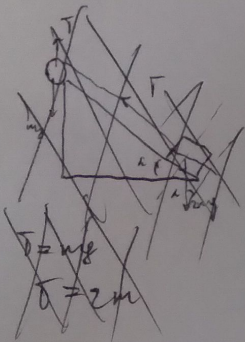 T
T
mg
2mg
T = mg
T = 2m